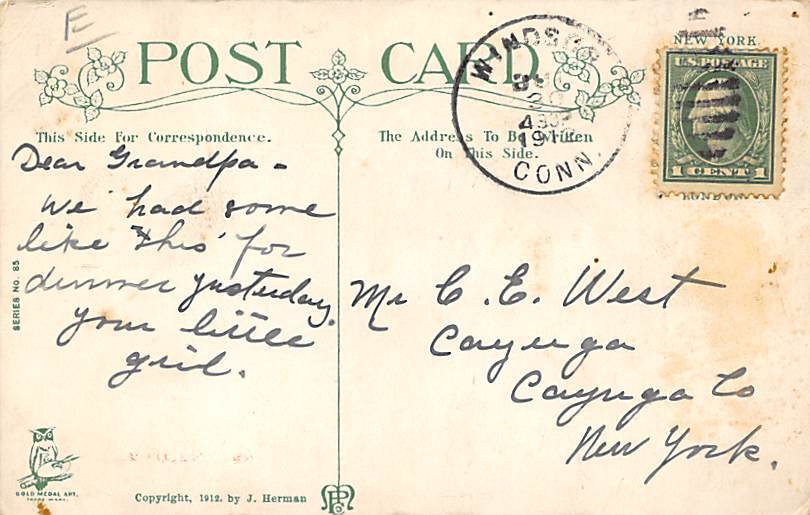 E
POST CARD
NEW YORK.
U.S. POSTAGE
1 CENT 1
WINDSOR
30
4 30P
CONN.
This Side For Correspondence.
The Address To Be Written
On This Side.
Dear Grandpa -
We had some
like "this" for
dinner yesterday.
Your little
girl.
Mr C. E. West
Cayuga
Cayuga Co
New York.
SERIES NO. 85
GOLD MEDAL ART.
TRADE MARK.
Copyright, 1912. by J. Herman